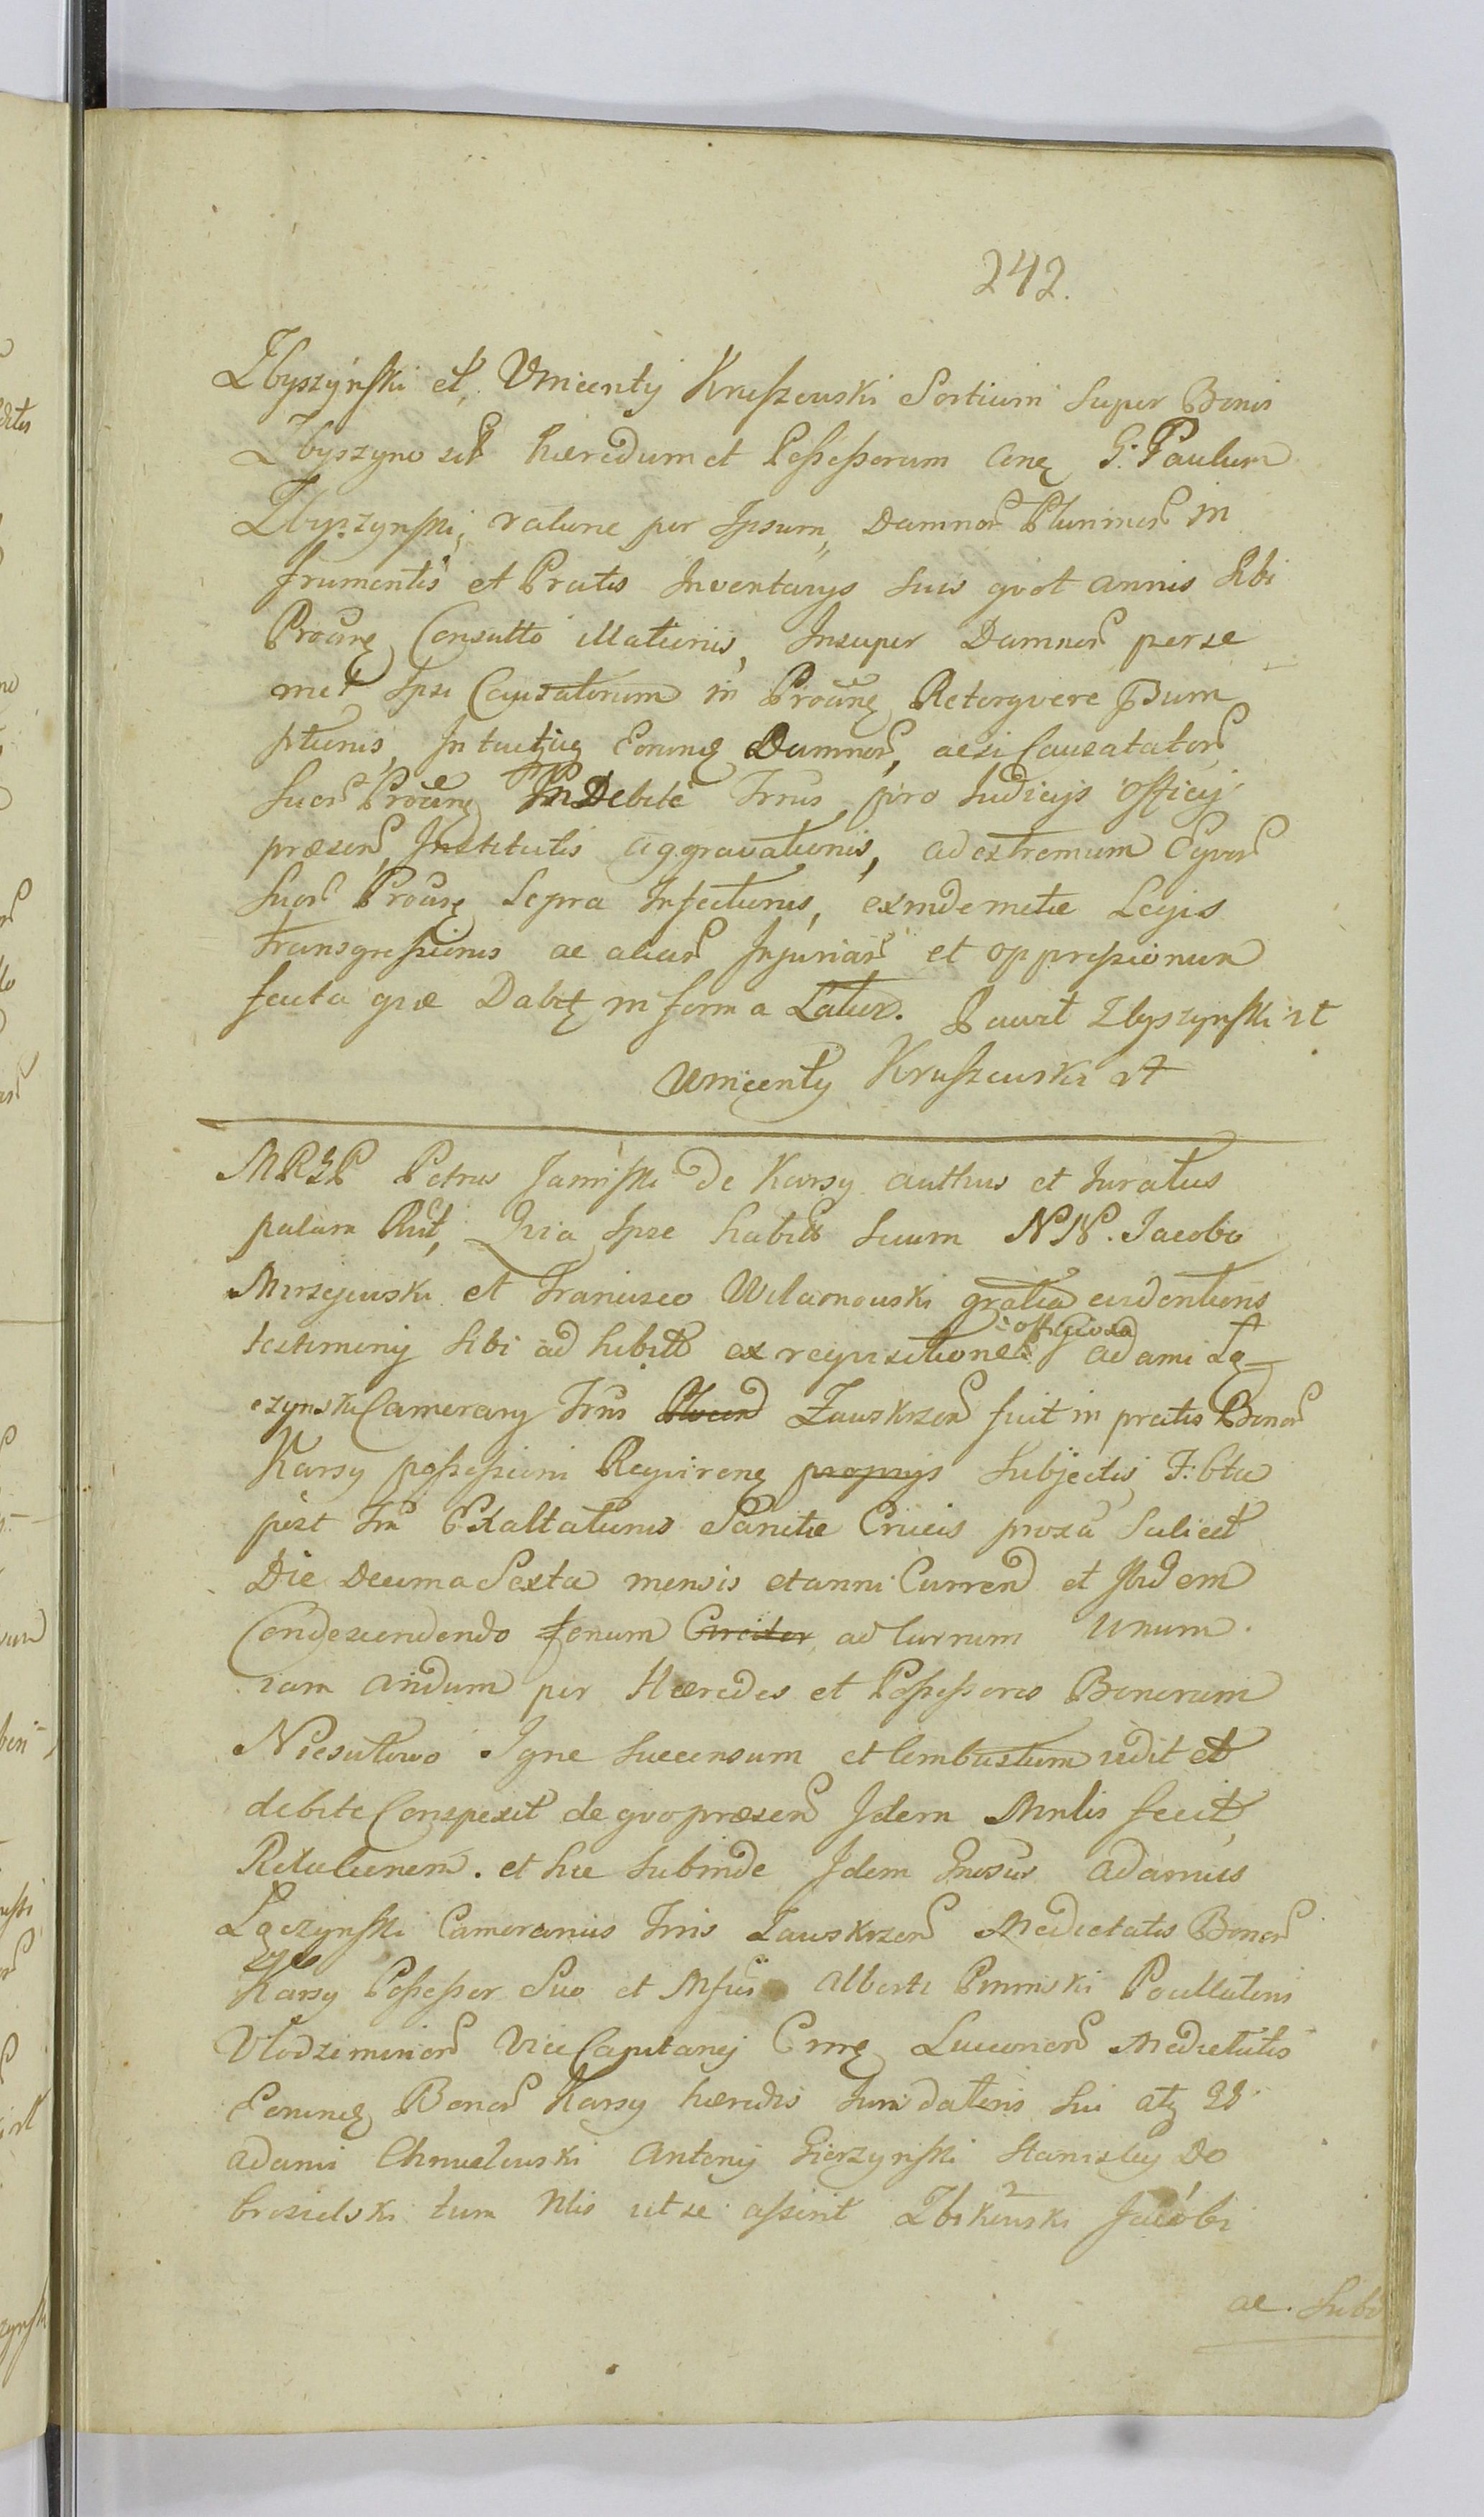 242.
Zbyszynski et Vincenty Kruszewski Sortium super Bonis
Zbyszyno sit hæredum et Possessorum cone G. Paulum
Zbyszynski, ratione per Ipsum, Damnor Plurimor in
frumentis et Pratis Inventarys suis qvot annis sibi
Procune Consulto illationis, Insuper Damnor per se
met Ipse Causatorum in Procune Retorqvere Præsum
ptionis, Intuituq Eorunq Damnor, ac si Causatator
suor Procune InDebite Trrus pro Judicijs officij
præsen, Institutis aggravationis, ad extremum Eqvor
suor Procune Lepra Infectionis, exinde metæ Legis
transgressionis ac aliar Injuriar et oppressionum
facta qræ Dabit in forma Latior. Pawet Zbyszynski rt
Vincenty Kruszewski rt
MRGP Petrus Janiski De Karsy authus et Juratus
palam Rut, Qvia Ipse habitis secum NN. Jacobo
Mirzejewski et Francisco Wilamowski gratia evidentioris
testimonij sibi ad hibitis ex reqvisitione officiosa Adami Łą-
czynski Camerary Trris Zawskrzen fuit in pratis Bonor
Karsy possessioni Reqvirene proprijs Subjectis F. btu
post Frm Exaltationis Sanctæ Crucis proxa Salicet
Die Decima Sexta mensis et anni Curren et Ibidem
Condescendendo fenum Circiter ad Currum Unum.
iam aridum per Hæredes et Possessores Bonorum
Niesutowo Igne succensum et Combustum vidit et
debite Conspexit de qvo præsen Idem Mnlis fecit
Relationem. et hic subinde Idem Gnosus Adamus
Łączynski Camerarius Trris Zawskrzen Medietatis Bonor
Karsy Possessor Suo et Mfus Alberti Pniniski Pocillatoris
Vlodzimirien Vice Capitanei Crne Luceorien Medietatis
Eorunq Bonor Karsy hæredis Juri datoris sui atq GG
Adami Chmielewski Antony Gierzynski Stanislay Do
brosielski tum Nlis ut se asserit Zbikowski Jacobi
ac. Subd